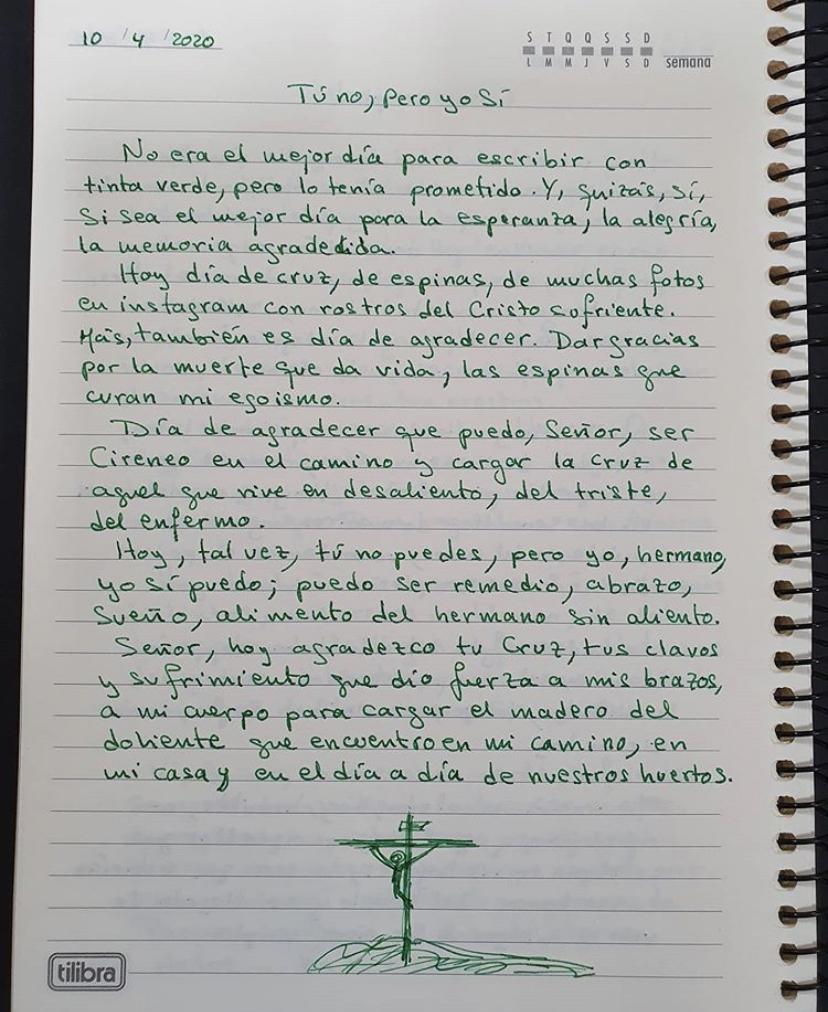 10 / 4 / 2020
S T Q Q S S D
L M M J V S D semana
Tú no, pero yo Sí
No era el mejor día para escribir con
tinta verde, pero lo tenía prometido. Y, quizás, sí,
Si sea el mejor día para la esperanza, la alegría,
la memoria agradedida.
Hoy día de cruz, de espinas, de muchas fotos
en instagram con rostros del Cristo sufriente.
Más, también es día de agradecer. Dar gracias
por la muerte que da vida, las espinas que
curan mi egoismo.
Día de agradecer que puedo, Señor, ser
Cireneo en el camino y cargar la cruz de
aquel que vive en desaliento, del triste,
del enfermo.
Hoy, tal vez, tú no puedes, pero yo, hermano,
yo sí puedo; puedo ser remedio, abrazo,
sueño, alimento del hermano sin aliento.
Señor, hoy agradezco tu Cruz, tus clavos
y sufrimiento que dio fuerza a mis brazos,
a mi cuerpo para cargar el madero del
doliente que encuentro en mi camino, en
mi casa y en el día a día de nuestros huertos.
tilibra